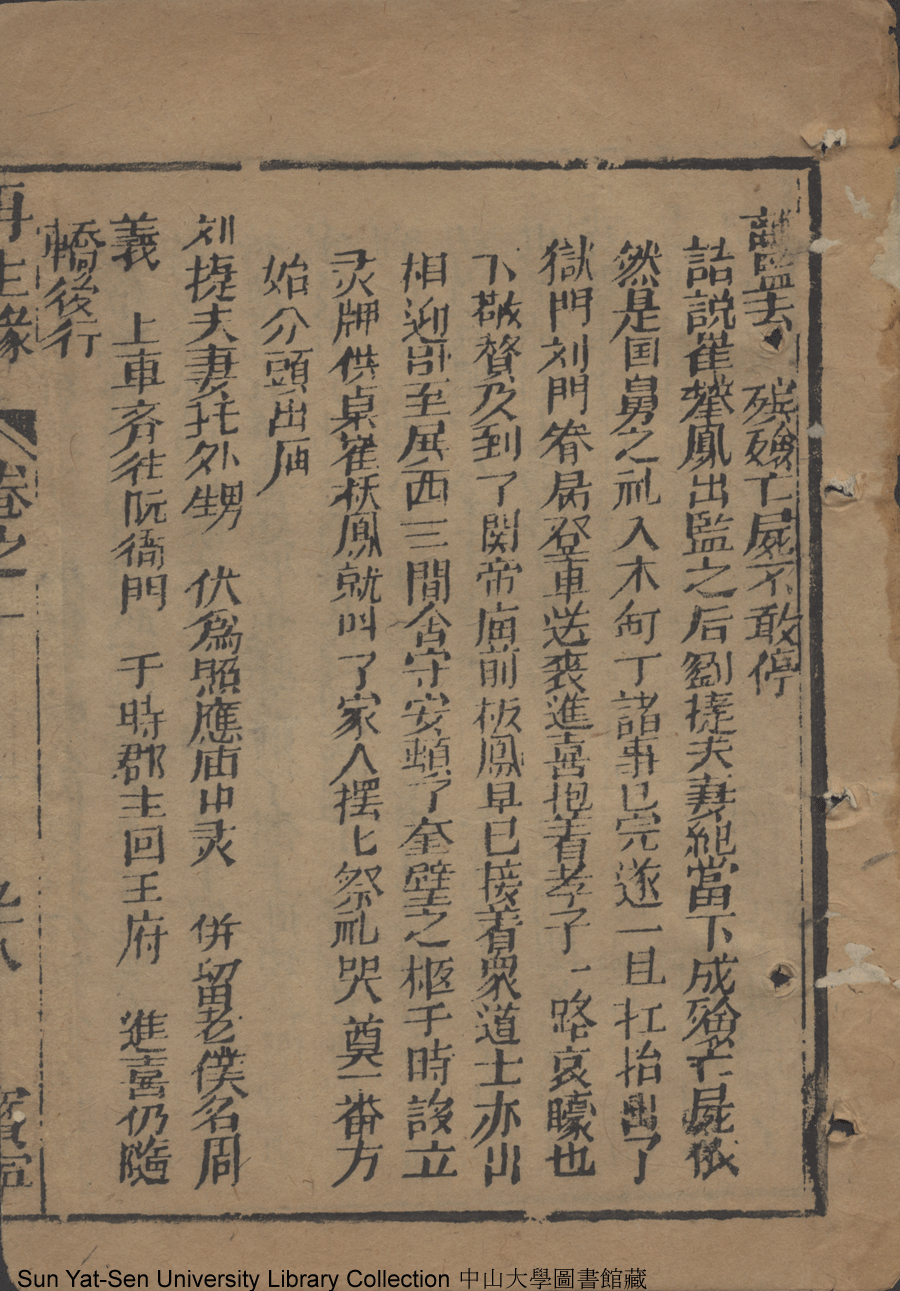 離監去　殯殮亡屍不敢停
話説崔攀鳳出監之后劉捷夫妻絕當下成殮亡屍依
然是国舅之礼入木匋丁諸事已完遂一且扛抬出了
獄門刘門眷属登車送喪進喜抱着孝子一路哀矇也
不敬贅及到了関帝庙前板鳳早已接着衆道士亦出
相迎卽至居西三間舍守安頓了奎璧之柩于時設立
灵牌供桌崔扳鳳就叫了家人摆匕祭礼哭奠一番方
始分頭出庙
刘捷夫妻托外甥　伏為照應庙中灵　併留老僕名周
義　上車斉往阮衙門　于時郡主回王府　進喜仍隨
轎後行
再生緣　卷之一　九八　寳寧
Sun Yat-Sen University Library Collection 中山大學圖書館藏